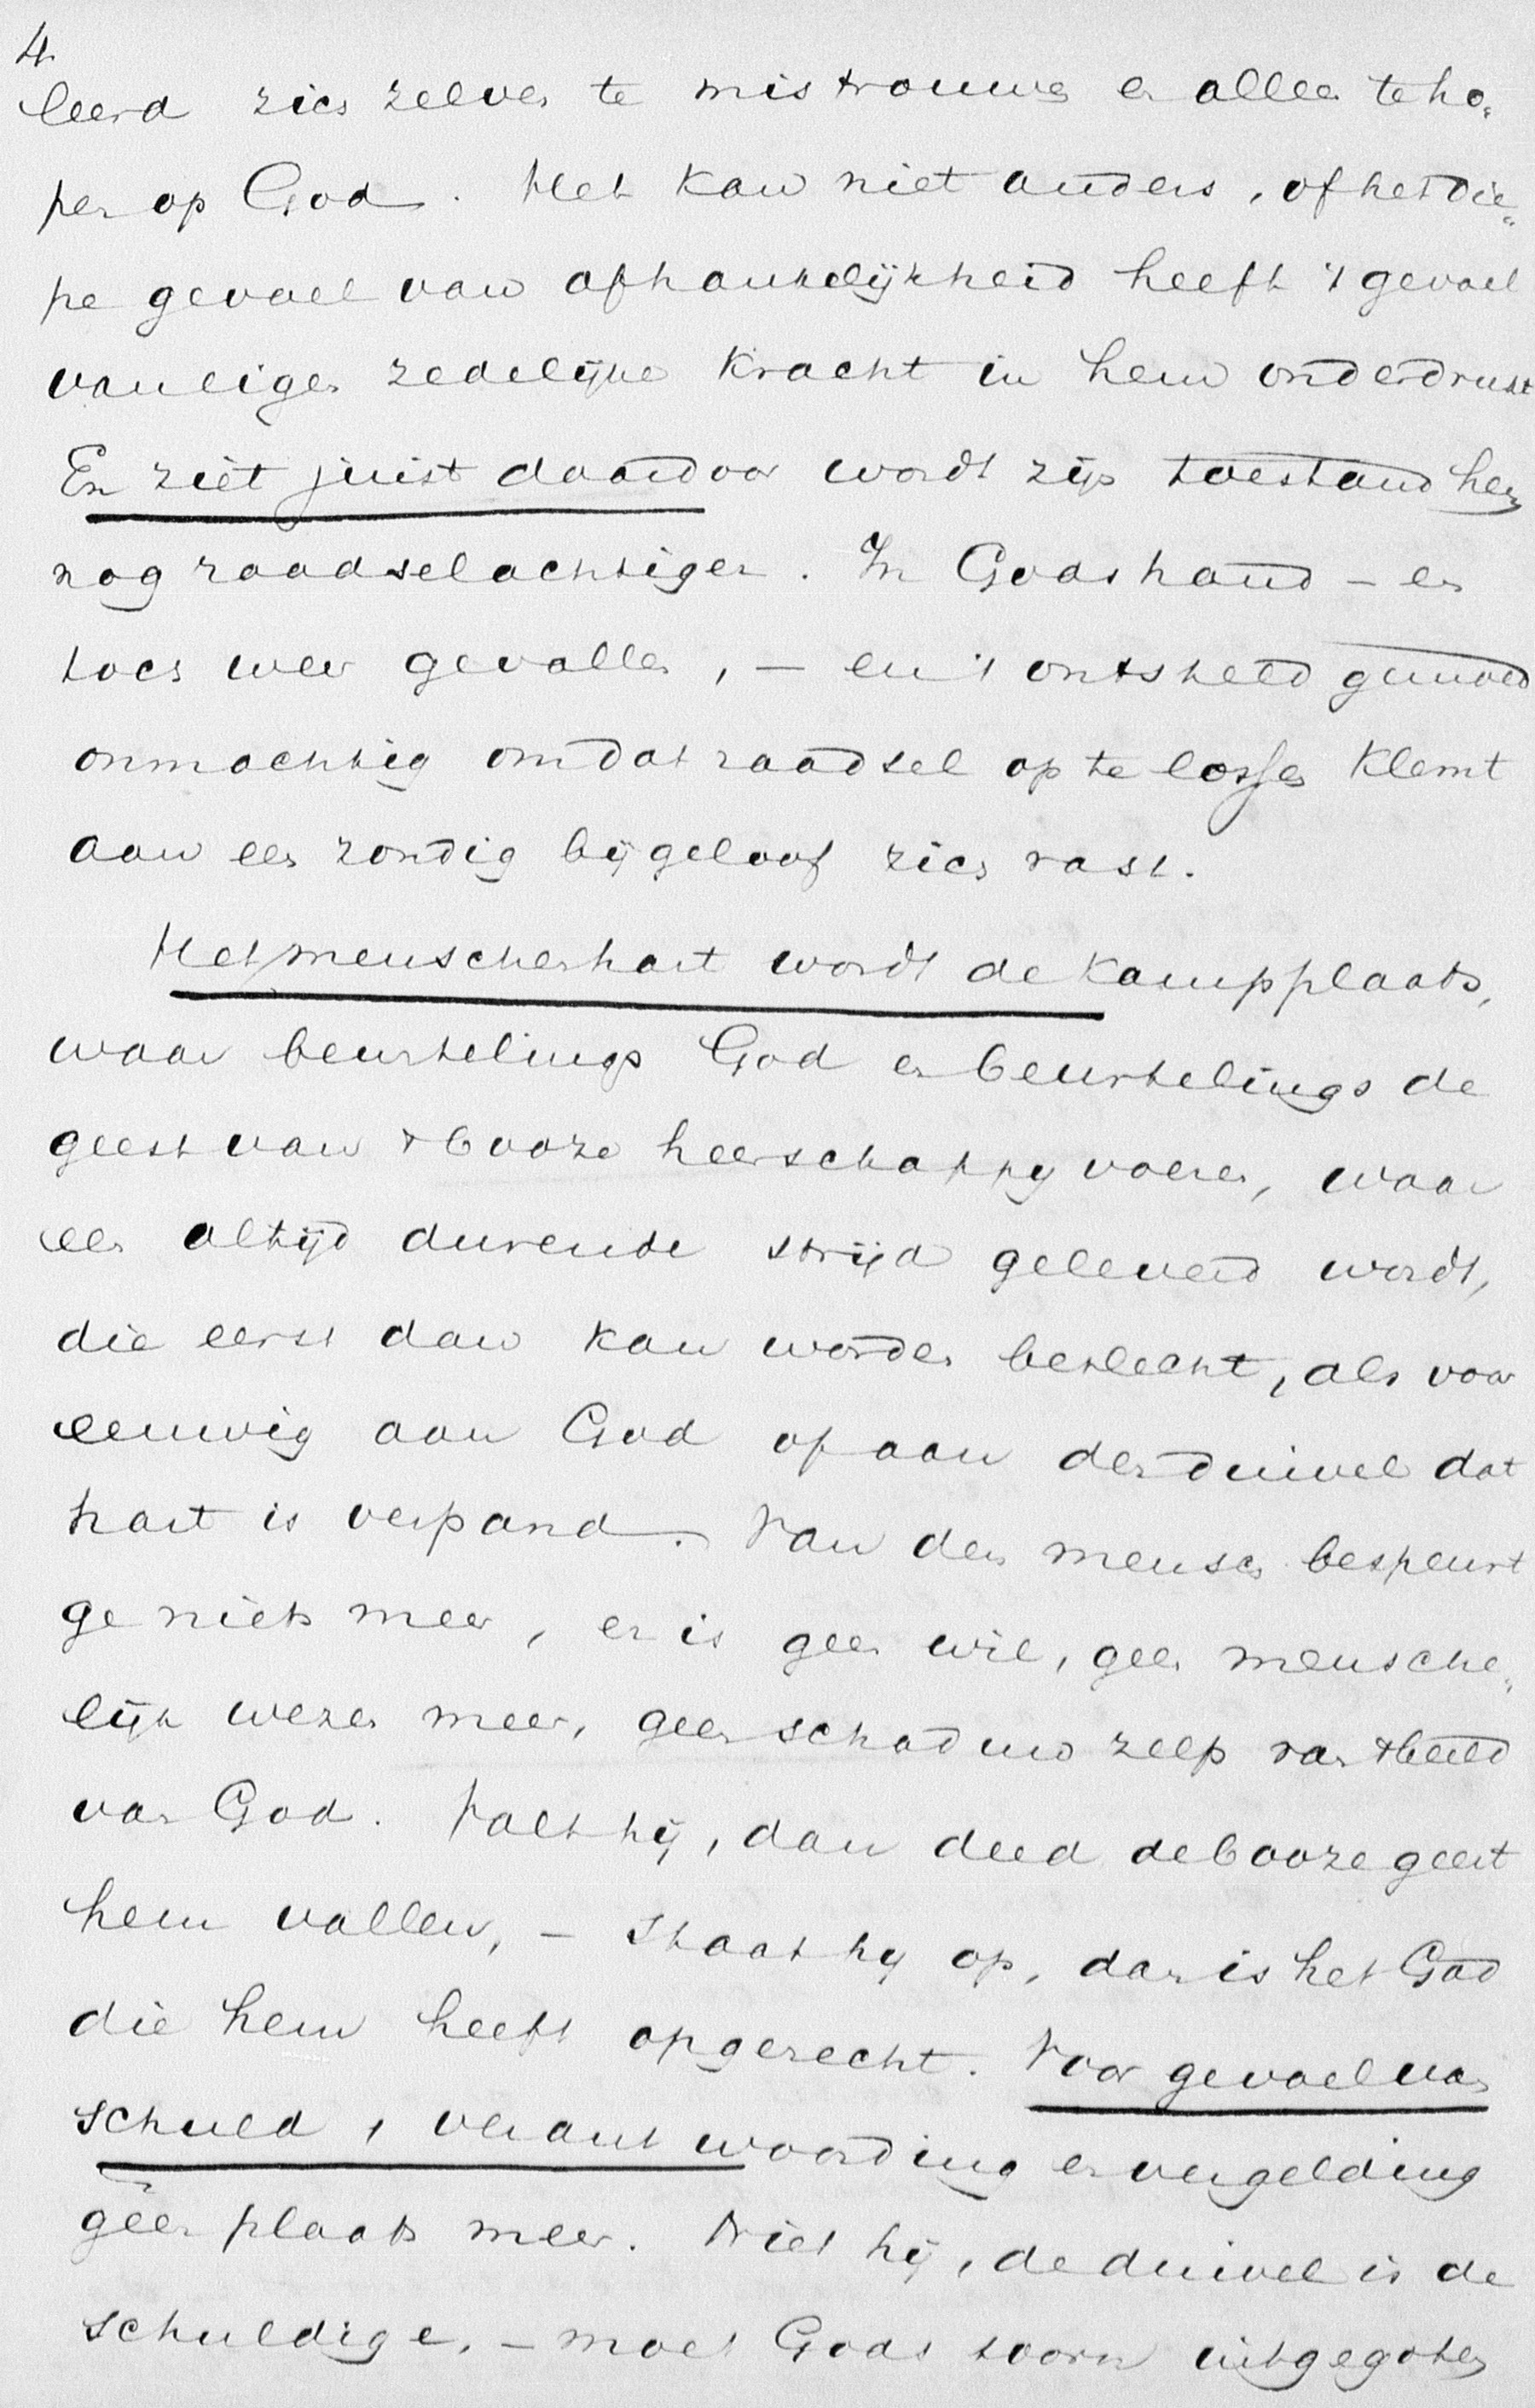 4
leerd zich zelven te mistrouwen en alleen te ho„
pen op God. Het kan niet anders, of het die„
pe gevoel van afhankelijkheid heeft 't gevoel
van eigen zedelijke kracht in hem onderdrukt
En ziet juist daardoor wordt zijn toestand hem
nog raadselachtiger. In Gods hand – en
toch weer gevallen, – en 't ontsteld gemoed
onmachtig om dat raadsel op te lossen klemt
aan een zondig bijgeloof zich vast.
Het menschenhart wordt de kampplaats,
waar beurtelings God en beurtelings de
geest van 't booze heerschappij voeren, waar
een altijd durende strijd geleverd wordt,
die eerst dan kan worden beslecht, als voor
eeuwig aan God of aan den duivel dat
hart is verpand. Van den mensch bespeurt
ge niets meer, er is geen wil, geen mensche„
lijk wezen meer, geen schaduw zelfs van 't beeld
van God. Valt hij, dan deed de booze geest
hem vallen, – Staat hij op, dan is het God
die hem heeft opgerecht. Voor gevoel van
schuld, verantwoording en vergelding
geen plaats meer. Niet hij, de duivel is de
schuldige, – moet Gods toorn uitgegoten